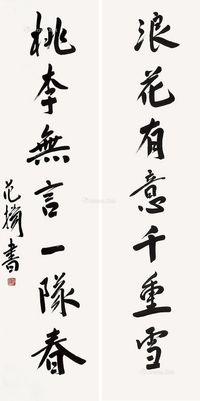 浪花有意千重雪
桃李無言一隊春
范擣書